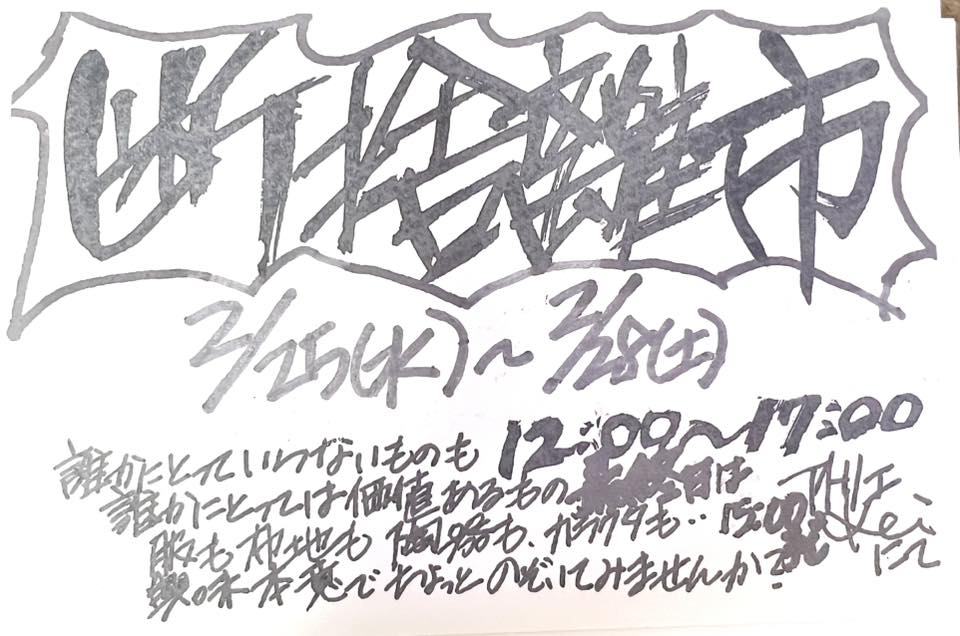 町捨雑市
2/25(水)～2/28(土)
12:00～17:00
誰かにとっていらないものも
誰かにとっては価値あるもの
最終日は
服も布地も陶器も、ガラクタも‥
15:00まで
興味本意でちょっとのぞいてみませんか?
Kei
にて